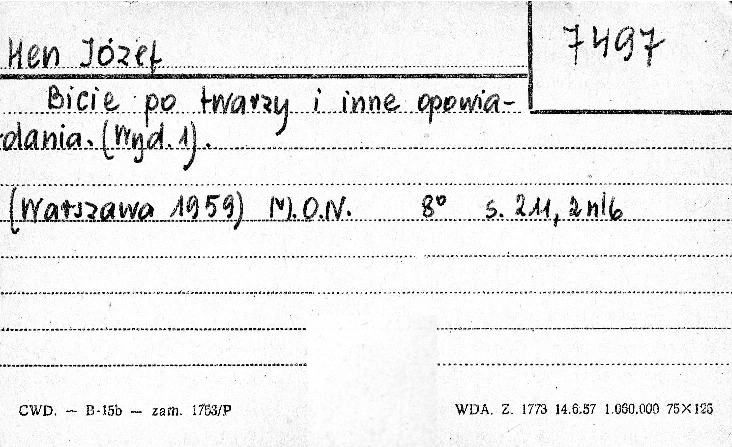 7497
Hen Józef
Bicie po twarzy i inne opowia-
dania. (Wyd. 1).
(Warszawa 1959) M.O.N. 8° s. 211, 2 nlb
CWD. — B-15b — zam. 1763/P
WDA. Z. 1773 14.6.57 1.060.000 75×125